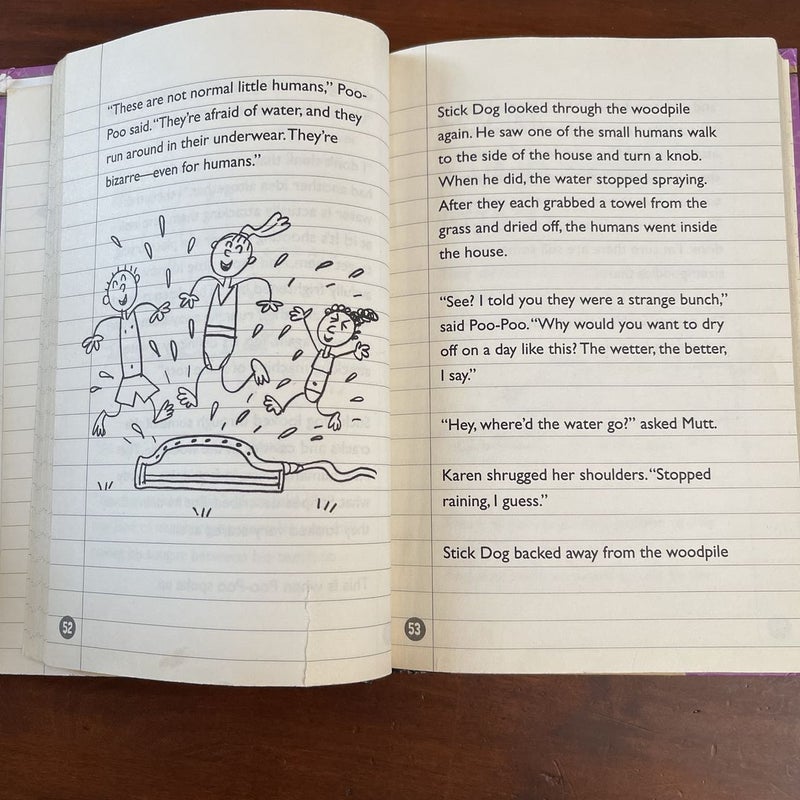 “These are not normal little humans,” Poo-
Poo said. “They’re afraid of water, and they
run around in their underwear. They’re
bizarre—even for humans.”
52
Stick Dog looked through the woodpile
again. He saw one of the small humans walk
to the side of the house and turn a knob.
When he did, the water stopped spraying.
After they each grabbed a towel from the
grass and dried off, the humans went inside
the house.
“See? I told you they were a strange bunch,”
said Poo-Poo. “Why would you want to dry
off on a day like this? The wetter, the better,
I say.”
“Hey, where’d the water go?” asked Mutt.
Karen shrugged her shoulders. “Stopped
raining, I guess.”
Stick Dog backed away from the woodpile
53